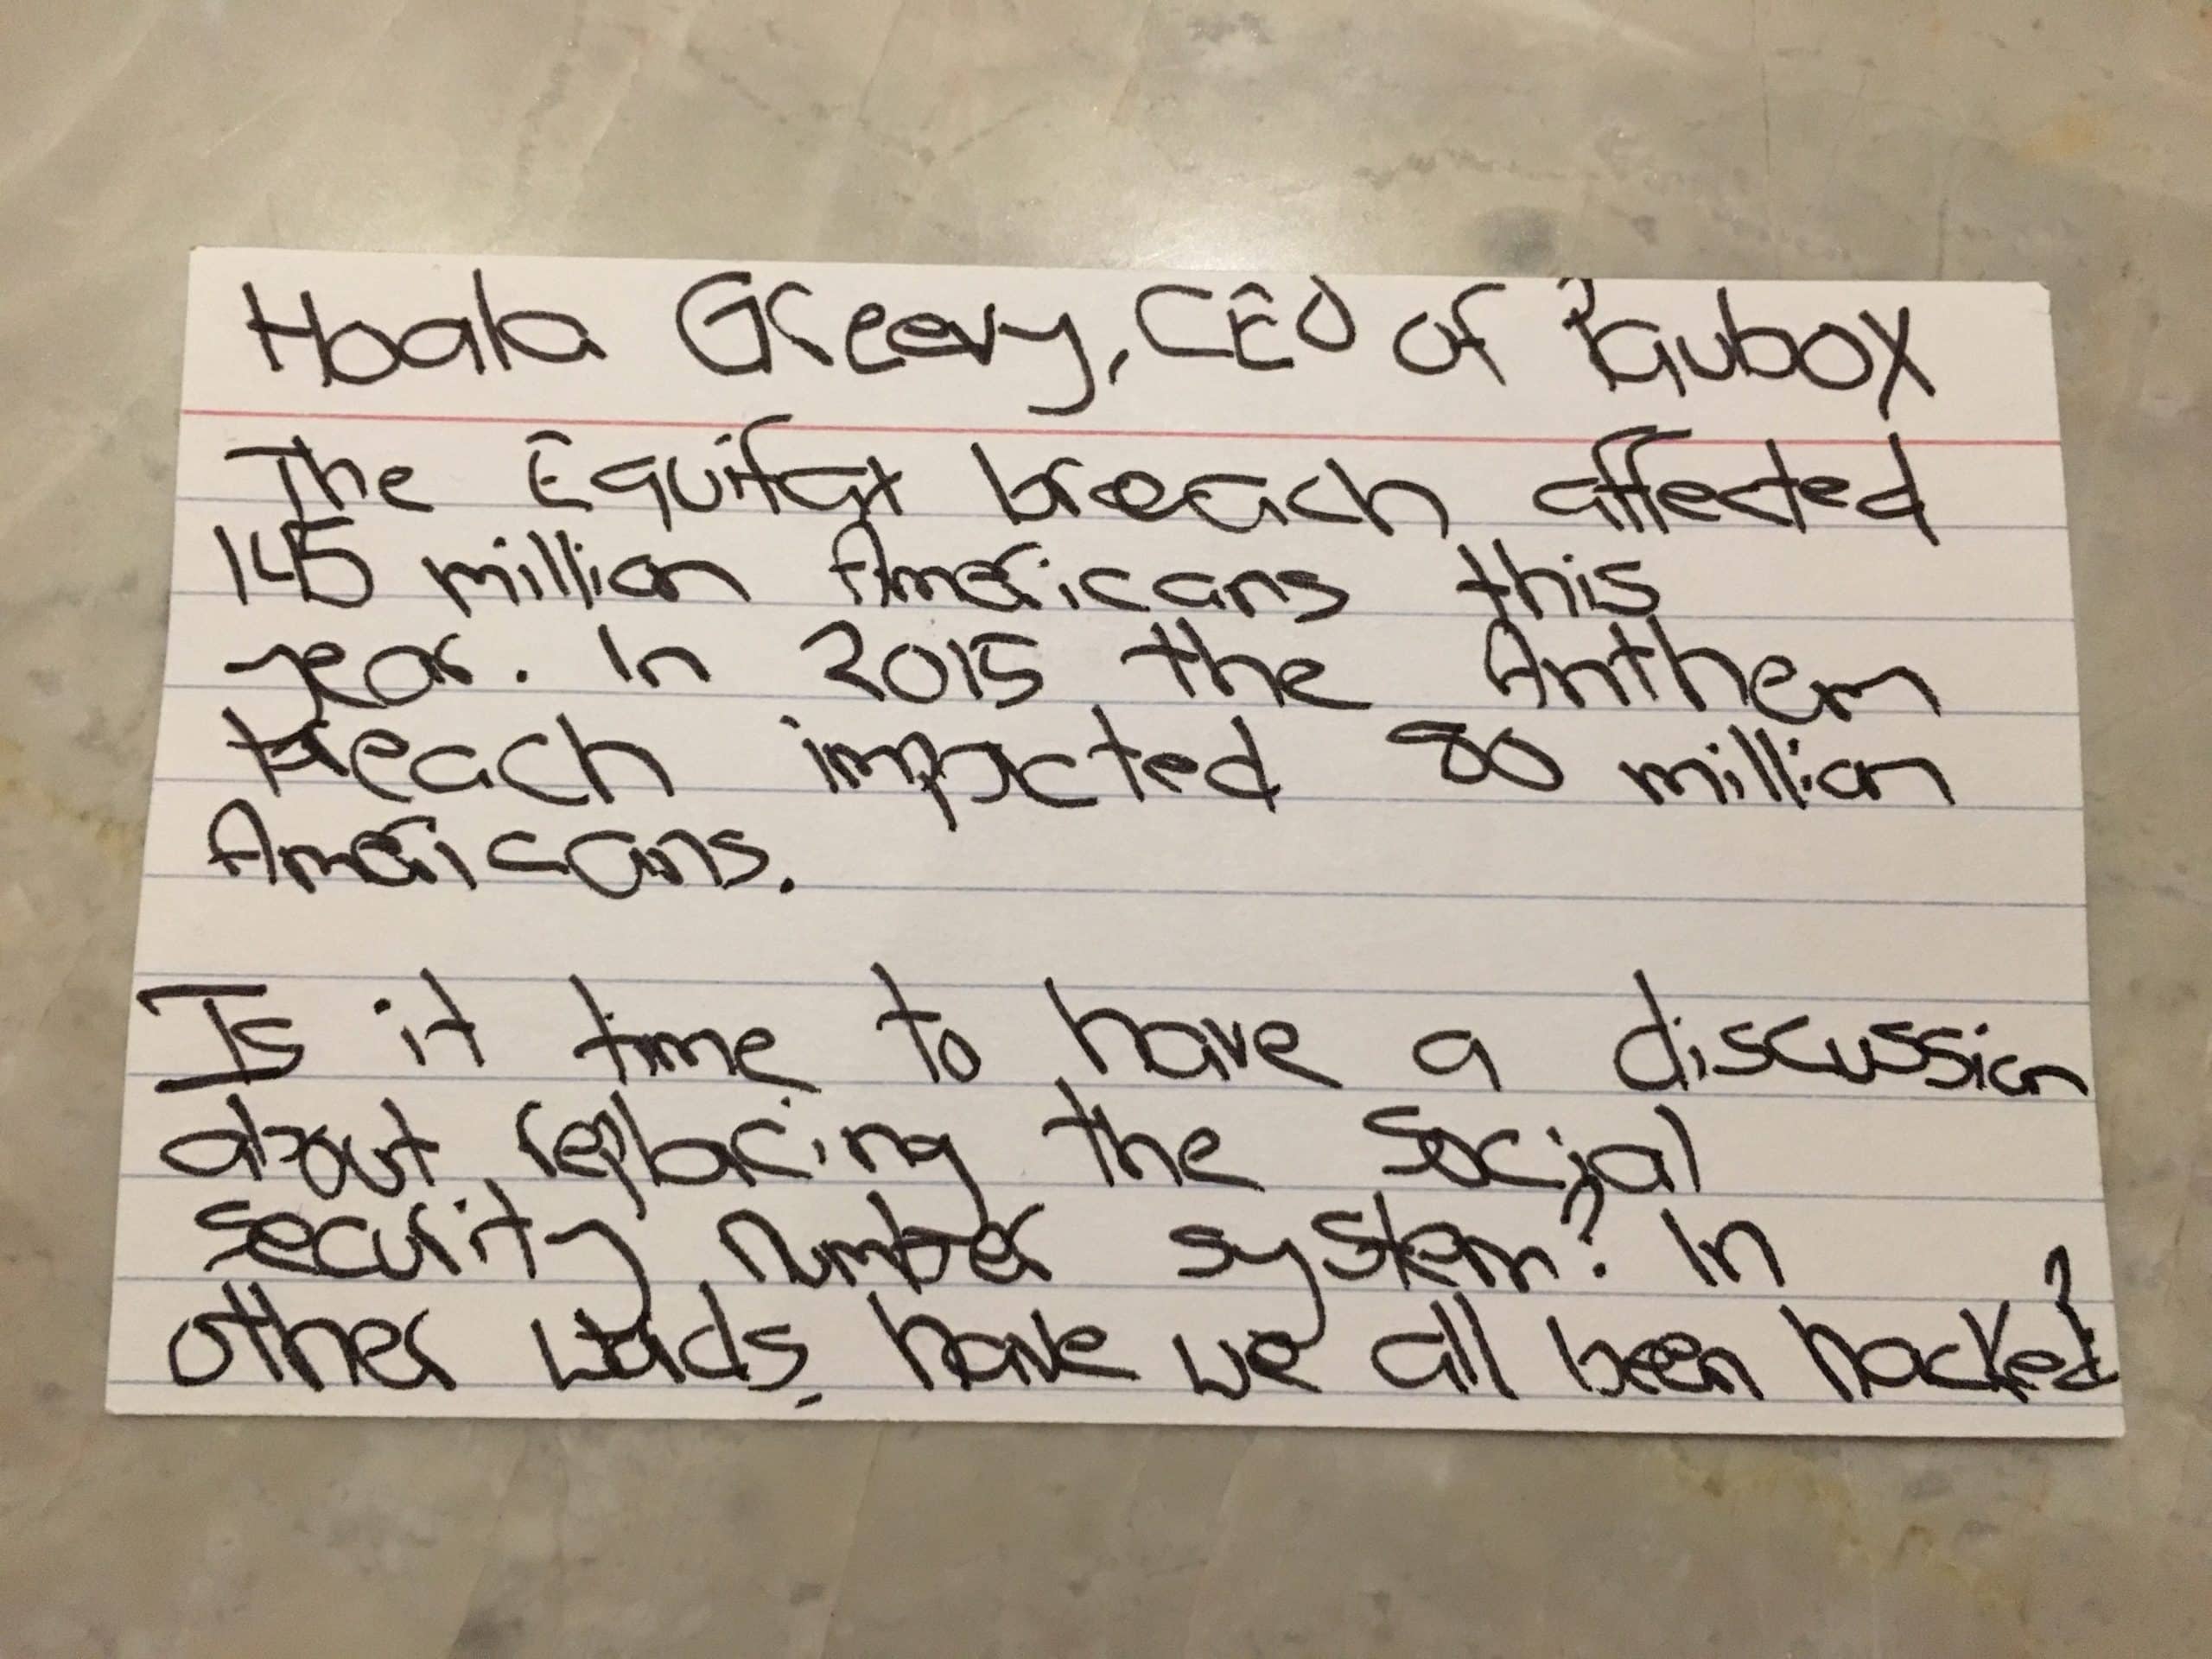 Hoala Greevy, CEO of Paubox
The Equifax breach affected
145 million Americans this
year. In 2015 the Anthem
breach impacted 80 million
Americans.
Is it time to have a discussion
about replacing the social
security number system? In
other words, have we all been hacked?